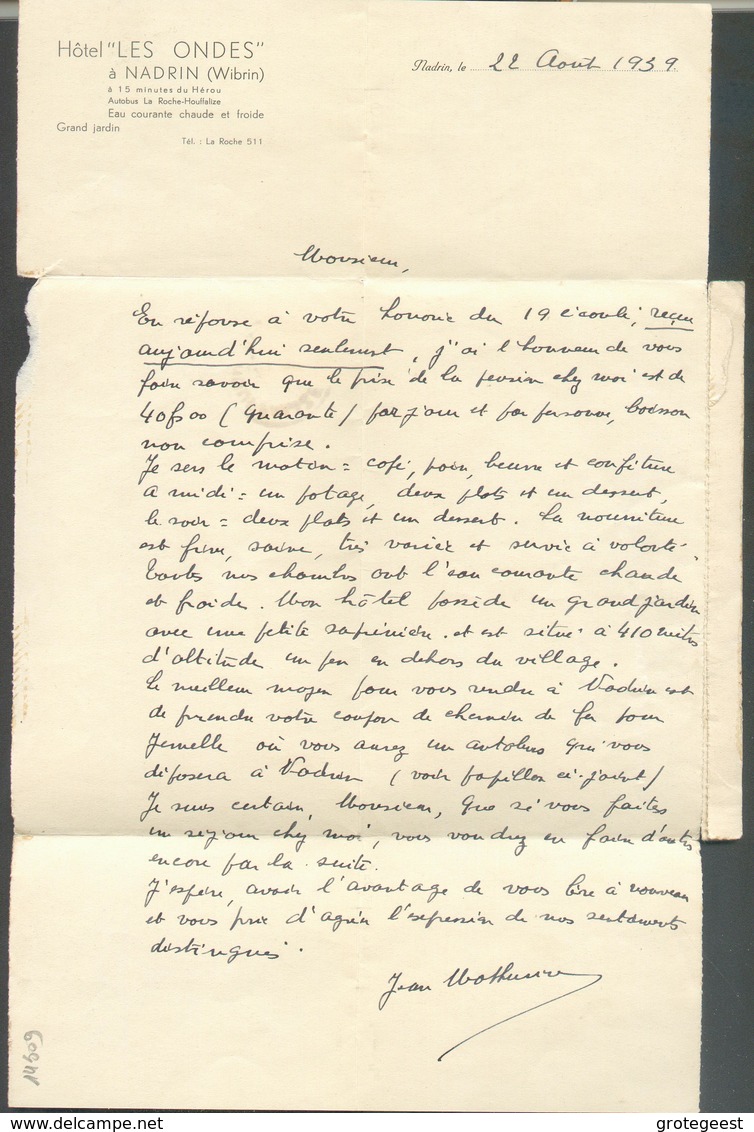 Hôtel "LES ONDES"
à NADRIN (Wibrin)
à 15 minutes du Hérou
Autobus La Roche-Houffalize
Eau courante chaude et froide
Grand jardin
Tél. : La Roche 511
Nadrin, le 22 Août 1939
Monsieur,
En réponse à votre honorée du 19 écoulé, reçue
aujourd'hui seulement, j'ai l'honneur de vous
faire savoir que le prix de la pension chez moi est de
40fs00 (quarante) par jour et par personne, boisson
non comprise.
Je sers le matin = café, pain, beurre et confiture
A midi = un potage, deux plats et un dessert,
le soir = deux plats et un dessert. La nourriture
est fine, saine, très variée et servie à volonté.
Toutes nos chambres ont l'eau courante chaude
et froide. Mon hôtel possède un grand jardin
avec une petite sapinière et est situé à 410 mètres
d'altitude un peu en dehors du village.
Le meilleur moyen pour vous rendre à Nadrin est
de prendre votre coupon de chemin de fer pour
Jemelle où vous aurez un autobus qui vous
déposera à Nadrin (voir papillon ci-joint)
Je suis certain, Monsieur, que si vous faites
un séjour chez moi, vous voudrez en faire d'autres
encore par la suite.
J'espère, avoir l'avantage de vous lire à nouveau
et vous prie d'agréer l'expression de nos sentiments
distingués.
Jean
delcampe.net
grotegeest